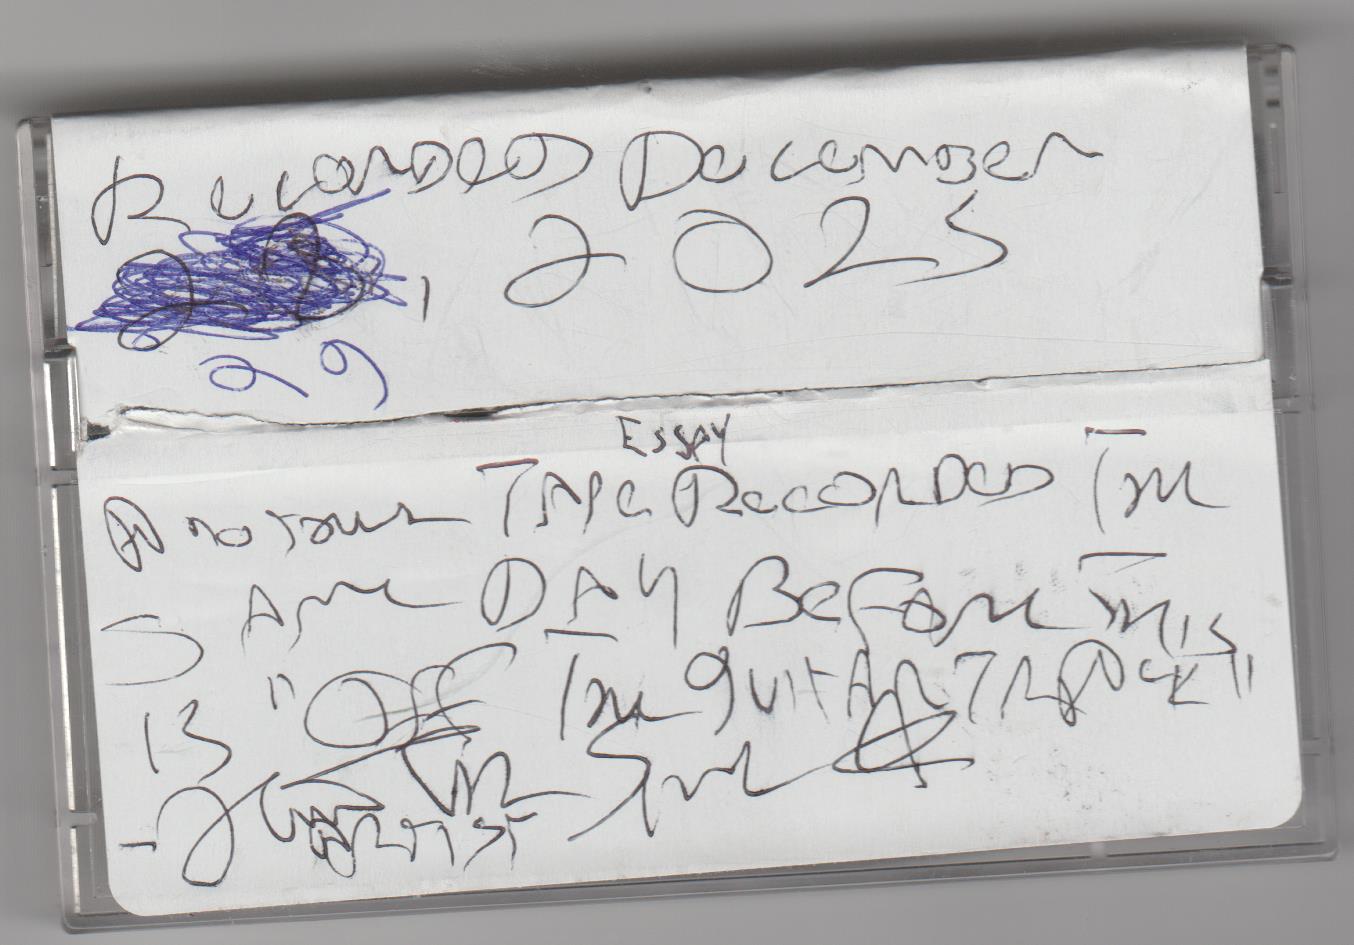 Recorded December
, 2025
29
Essay
Another Tape Recorded The
Same Day Before This
Is "Off The guitar Track"
Artist